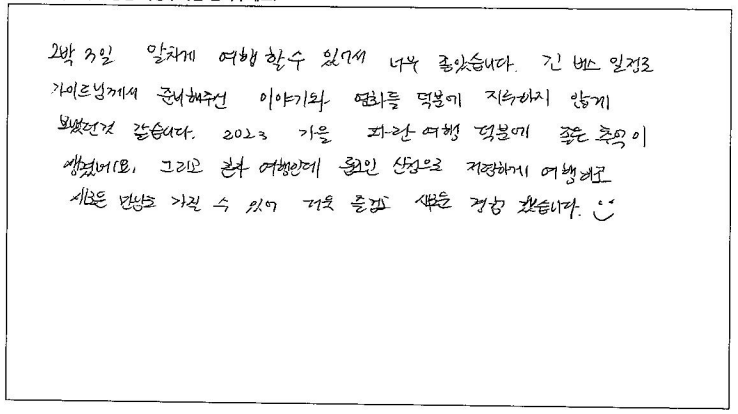 2박 3일 알차게 여행 할 수 있어서 너무 좋았습니다. 긴 버스 일정도
가이드님께서 준비해주신 이야기와 영화들 덕분에 지루하지 않게
보냈던것 같습니다. 2023 가을 파란여행 덕분에 좋은 추억이
생겼네요. 그리고 혼자 여행인데 룸조인 신청으로 저렴하게 여행하고
새로운 만남도 가질 수 있어 더욱 즐겁고 새로운 경험 했습니다. :)